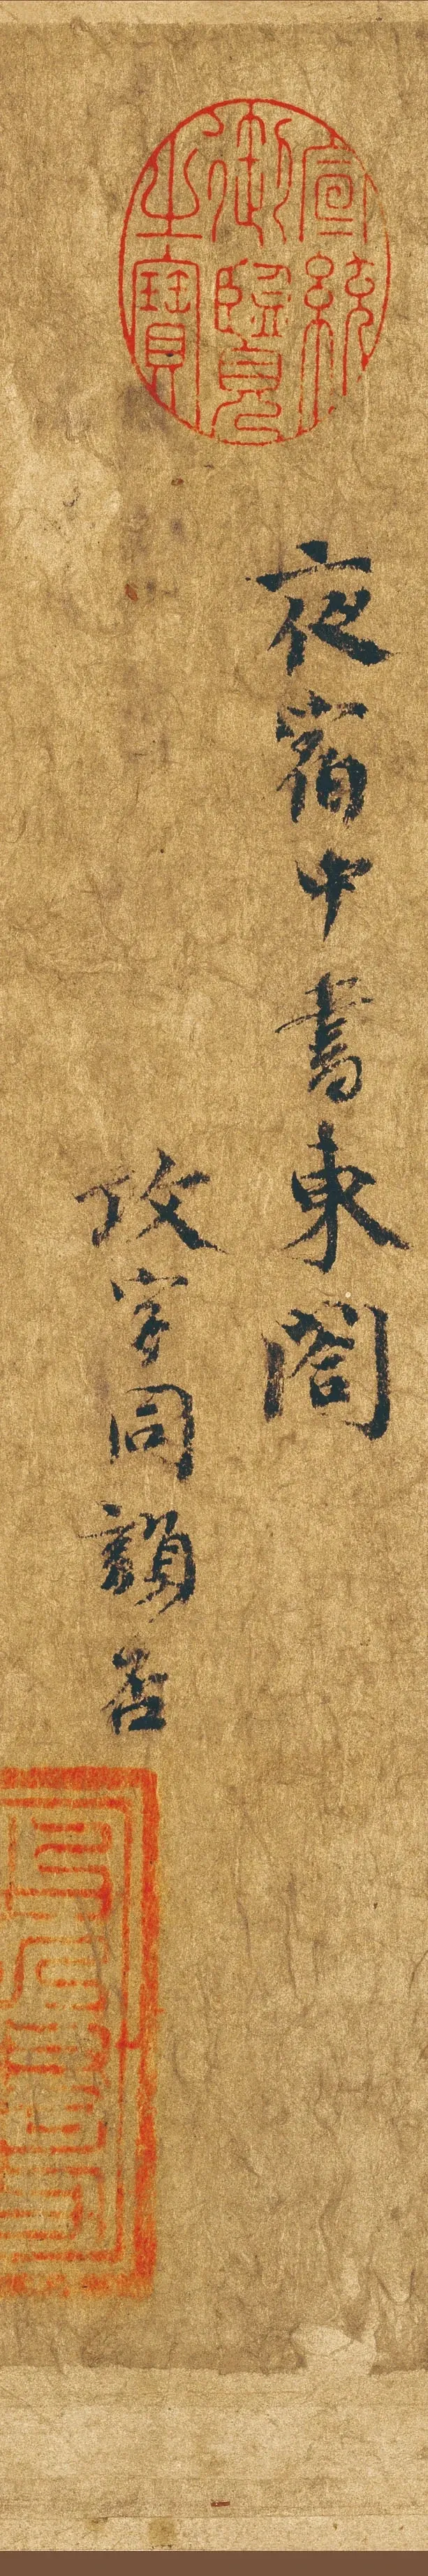 宣統
御覽
之寶
夜宿中書東閣
攻字同韻否